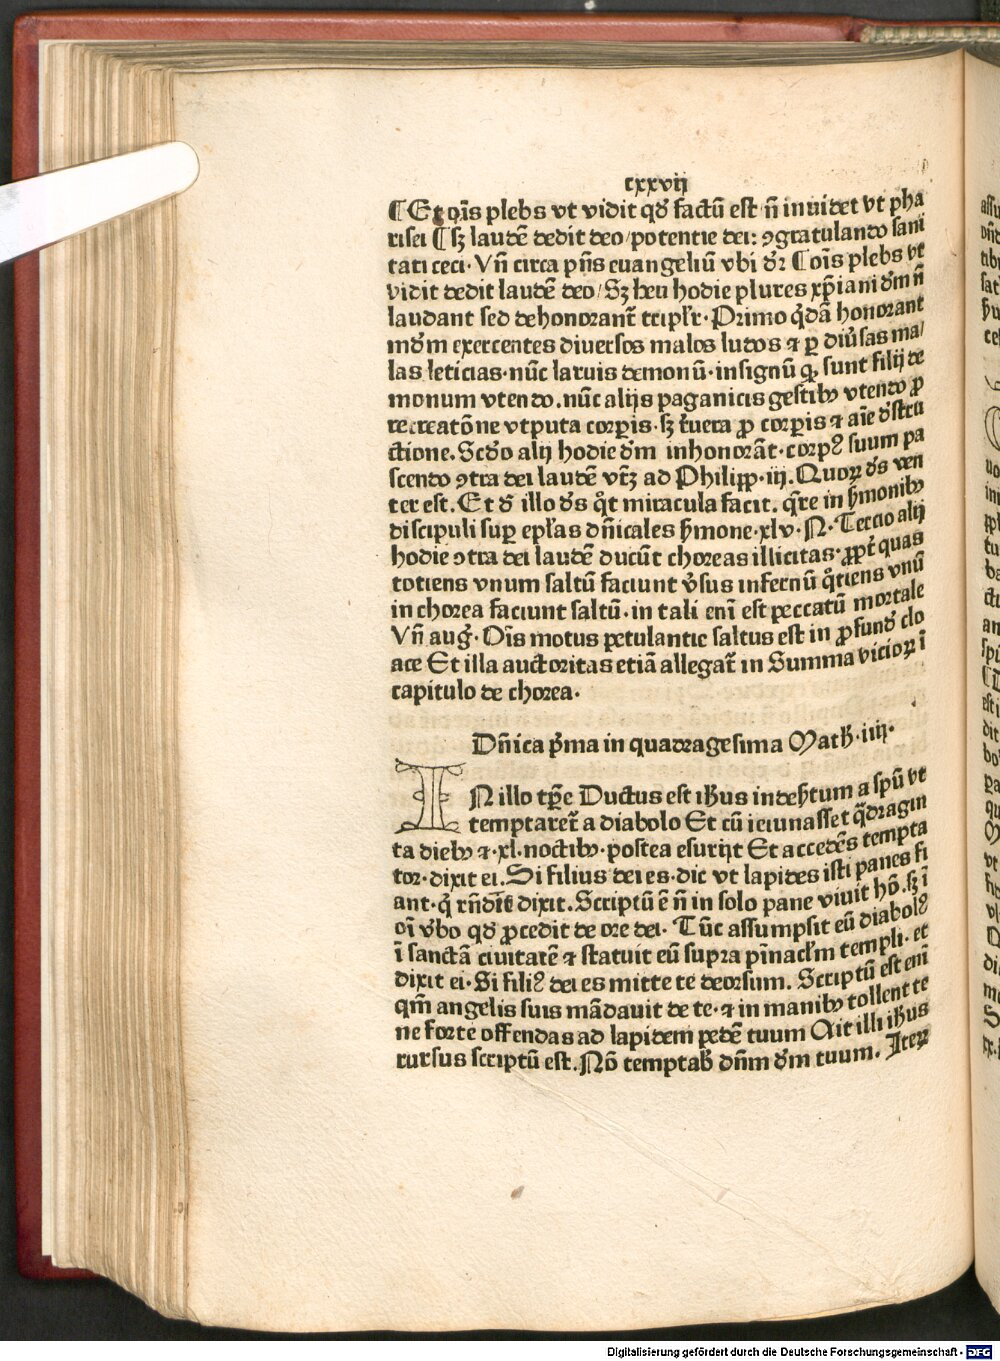 cxxvij
¶ Et oīs plebs vt vidit qď factū est nō inuidet vt pha
risei ¶ sꝫ laudē dedit deo/potentie dei: ꝯgratulando sani
tati ceci. Vn̄ circa pn̄s euangeliū vbi dr̄ ¶ Oīs plebs vt
vidit dedit laudē deo/Sꝫ heu hodie plures xp̄iani dm̄ nō
laudant sed dehonorant̄ triplr̄. Primo qd̄ā honorant
mōm exercentes diuersos malos ludos ⁊ ꝑ diūsas ma/
las leticias. nūc laruis demonū. insignū qꝫ sunt filij de
monum vtendo. nūc alijs paganicis gestibꝫ vtendo ꝓ
recreatōne vtputa corꝑis. sꝫ ūera ꝓ corꝑis ⁊ aīe dstru
ctione. Scdo alij hodie dm̄ inhonorāt. corpꝰ suum pa
scendo ꝯtra dei laudē vt̄ꝫ ad Philipp. iij. Quoꝝ ds ven
ter est. Et d illo ds qt̄ miracula facit. qr̄e in ẜmonibꝫ
discipuli suꝑ epl̄as dn̄icales ẜmone. xlv. N. Tercio alij
hodie ꝯtra dei laudē ducūt choreas illicitas. ꝓpt̄ quas
totiens vnum saltū faciunt v̄sus infernū qt̄iens vnū
in chorea faciunt saltū. in tali eni est peccatū mortale
Vn̄ aug̉. Oīs motus petulantie saltus est in ꝓfunď clo
ace Et illa auctoritas etiā allegat̄ in Summa vicioꝝ ī
capitulo de chorea.
Dn̄ica p̄ma in quadragesima Math̉. iiij.
IN illo tꝑe Ductus est ihūs in deẜtum a spū vt
temptaret̄ a diabolo Et cū ieiunasset qd̄ragin
ta diebꝫ ⁊. xl. noctibꝫ. postea esurijt Et accedēs tempta
tor. dixit ei. Si filius dei es. dic vt lapides isti panes fi
ant. q̄ rn̄dēs dixit. Scriptū ē nō in solo pane viuit hō. sꝫ ī
oī v̄bo qď ꝓcedit de ore dei. Tūc assumpsit eū diabolꝰ
ī sanctā ciuitatē ⁊ statuit eū supra pīnaclm̄ templi. et
dixit ei. Si filiꝰ dei es mitte te deorsum. Scriptū est enī
qm̄ angelis suis mādauit de te. ⁊ in manibꝫ tollent te
ne forte offendas ad lapidem pedē tuum Ait illi ihūs
rursus scriptū est. Nō temptab̉ dn̄m dm̄ tuum. Iteꝝ
Digitalisierung gefördert durch die Deutsche Forschungsgemeinschaft - DFG